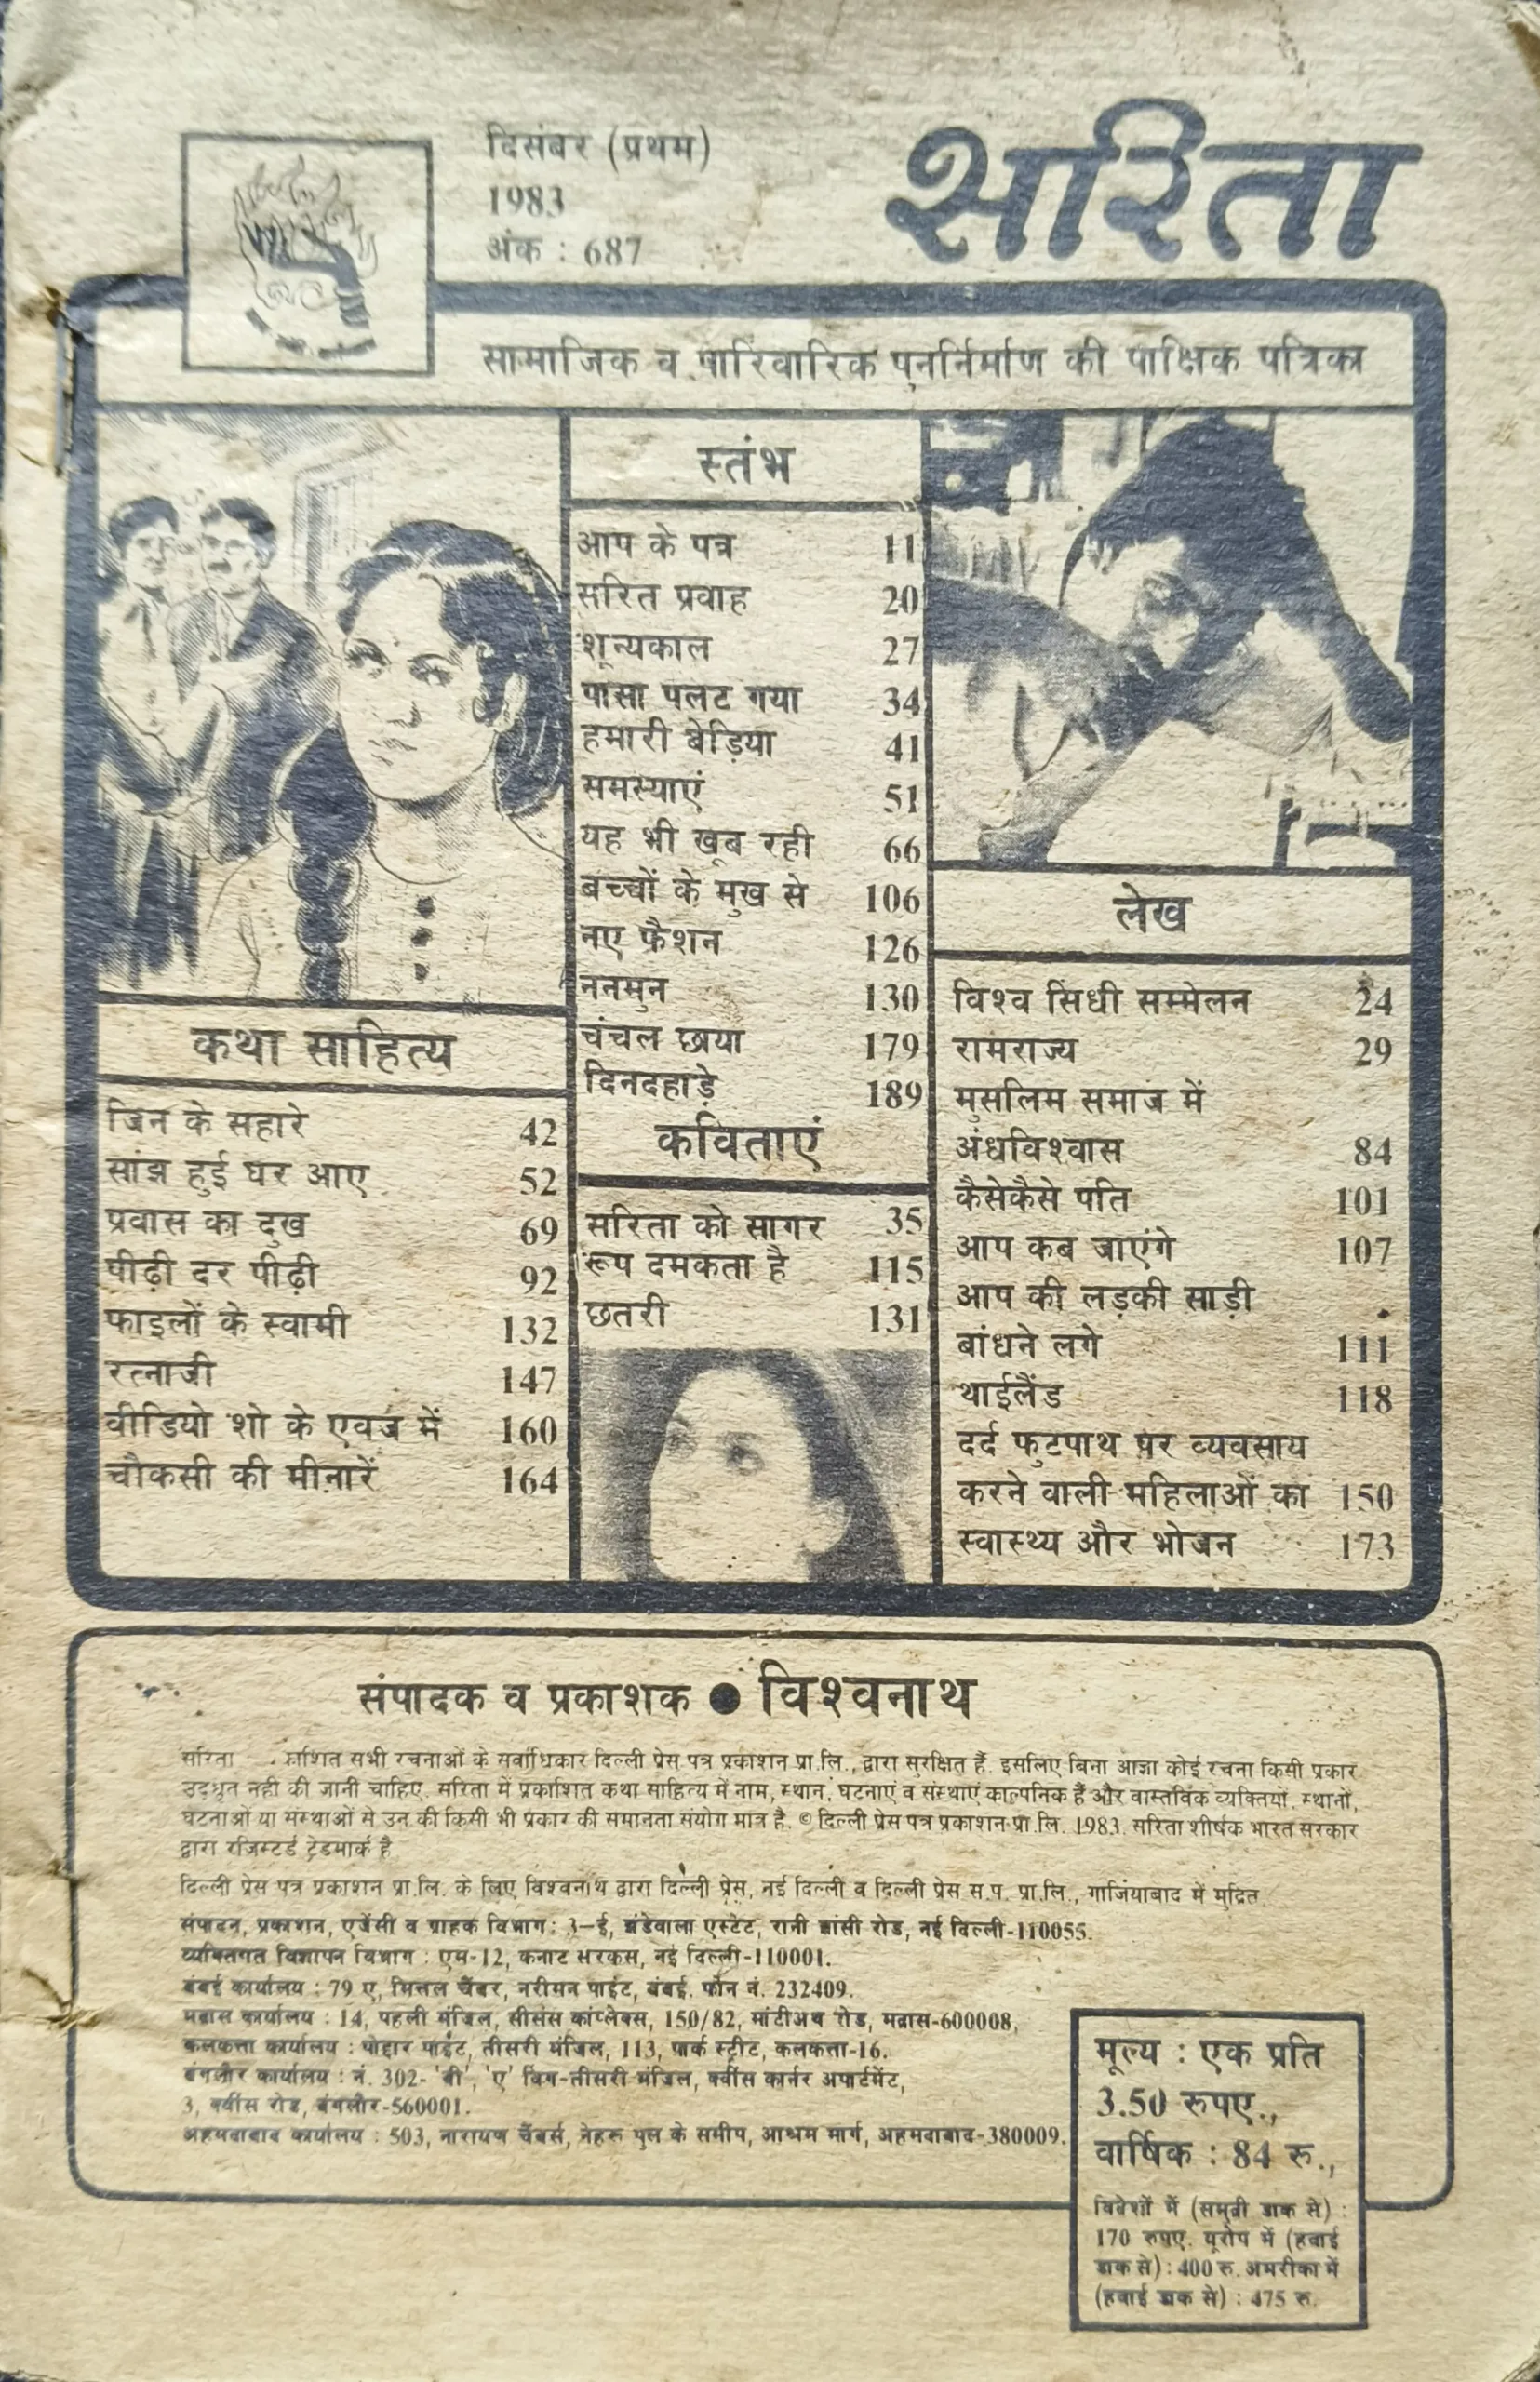 दिसंबर (प्रथम)
1983
अंक : 687
सरिता
सामाजिक व पारिवारिक पुनर्निर्माण की पाक्षिक पत्रिका
स्तंभ
आप के पत्र 11
सरित प्रवाह 20
शून्यकाल 27
पासा पलट गया 34
हमारी बेड़िया 41
समस्याएं 51
यह भी खूब रही 66
बच्चों के मुख से 106
नए फैशन 126
ननमुन 130
चंचल छाया 179
दिनदहाड़े 189
कविताएं
सरिता को सागर 35
रूप दमकता है 115
छतरी 131
कथा साहित्य
जिन के सहारे 42
सांझ हुई घर आए 52
प्रवास का दुख 69
पीढ़ी दर पीढ़ी 92
फाइलों के स्वामी 132
रत्नाजी 147
वीडियो शो के एवज में 160
चौकसी की मीनारें 164
लेख
विश्व सिंधी सम्मेलन 24
रामराज्य 29
मुसलिम समाज में
अंधविश्वास 84
कैसेकैसे पति 101
आप कब जाएंगे 107
आप की लड़की साड़ी
बांधने लगे 111
थाईलैंड 118
दर्द फुटपाथ पर व्यवसाय
करने वाली महिलाओं का 150
स्वास्थ्य और भोजन 173
संपादक व प्रकाशक ● विश्वनाथ
सरिता सभी रचनाओं के सर्वाधिकार दिल्ली प्रेस पत्र प्रकाशन प्रा.लि., द्वारा सुरक्षित हैं. इसलिए बिना आज्ञा कोई रचना किसी प्रकार
उद्धृत नहीं की जानी चाहिए. सरिता में प्रकाशित कथा साहित्य में नाम, स्थान, घटनाएं व संस्थाएं काल्पनिक हैं और वास्तविक व्यक्तियों, स्थानों,
घटनाओं या संस्थाओं से उन की किसी भी प्रकार की समानता संयोग मात्र है. © दिल्ली प्रेस पत्र प्रकाशन प्रा.लि. 1983. सरिता शीर्षक भारत सरकार
द्वारा रजिस्टर्ड ट्रेडमार्क है
दिल्ली प्रेस पत्र प्रकाशन प्रा.लि. के लिए विश्वनाथ द्वारा दिल्ली प्रेस, नई दिल्ली व दिल्ली प्रेस स.प. प्रा.लि., गाजियाबाद में मुद्रित
संपादन, प्रकाशन, एजेंसी व ग्राहक विभाग: 3-ई, झंडेवाला एस्टेट, रानी झांसी रोड, नई दिल्ली-110055.
व्यक्तिगत विज्ञापन विभाग : एम-12, कनाट सरकस, नई दिल्ली-110001.
बंबई कार्यालय : 79 ए, मित्तल चैंबर, नरीमन पाईंट, बंबई. फोन नं. 232409.
मद्रास कार्यालय : 14, पहली मंजिल, सीसंस कांप्लेक्स, 150/82, मांटीअथ रोड, मद्रास-600008,
कलकत्ता कार्यालय : पोद्दार पाईंट, तीसरी मंजिल, 113, पार्क स्ट्रीट, कलकत्ता-16.
बंगलौर कार्यालय : नं. 302- 'बी', 'ए' विंग-तीसरी मंजिल, क्वींस कार्नर अपार्टमेंट,
3, क्वींस रोड, बंगलौर-560001.
अहमदाबाद कार्यालय : 503, नारायण चैंबर्स, नेहरू पुल के समीप, आश्रम मार्ग, अहमदाबाद-380009.
मूल्य : एक प्रति
3.50 रुपए.,
वार्षिक : 84 रु.,
विदेशों में (समुद्री डाक से) :
170 रुपए. यूरोप में (हवाई
डाक से) : 400 रु. अमरीका में
(हवाई डाक से) : 475 रु.